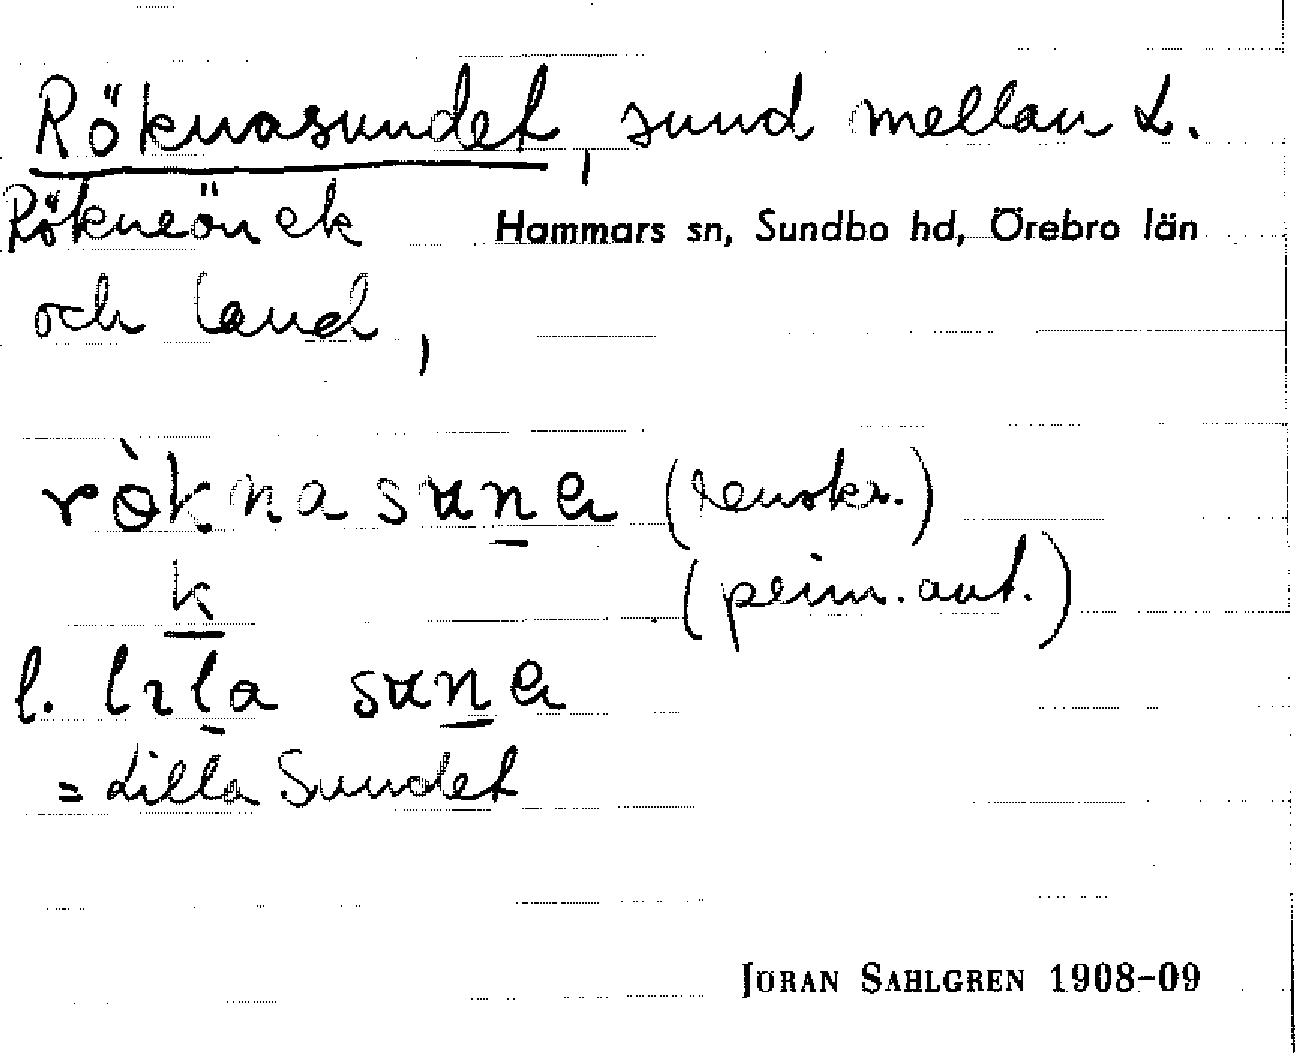 Röknasundet, sund mellan L.
Rökneön ek
Hammars sn, Sundbo hd, Örebro län
och land,
rö̀knasunə (renskr.)
k (prim. ant.)
l. lɩla sunə
= Lilla Sundet
JÖRAN SAHLGREN 1908-09